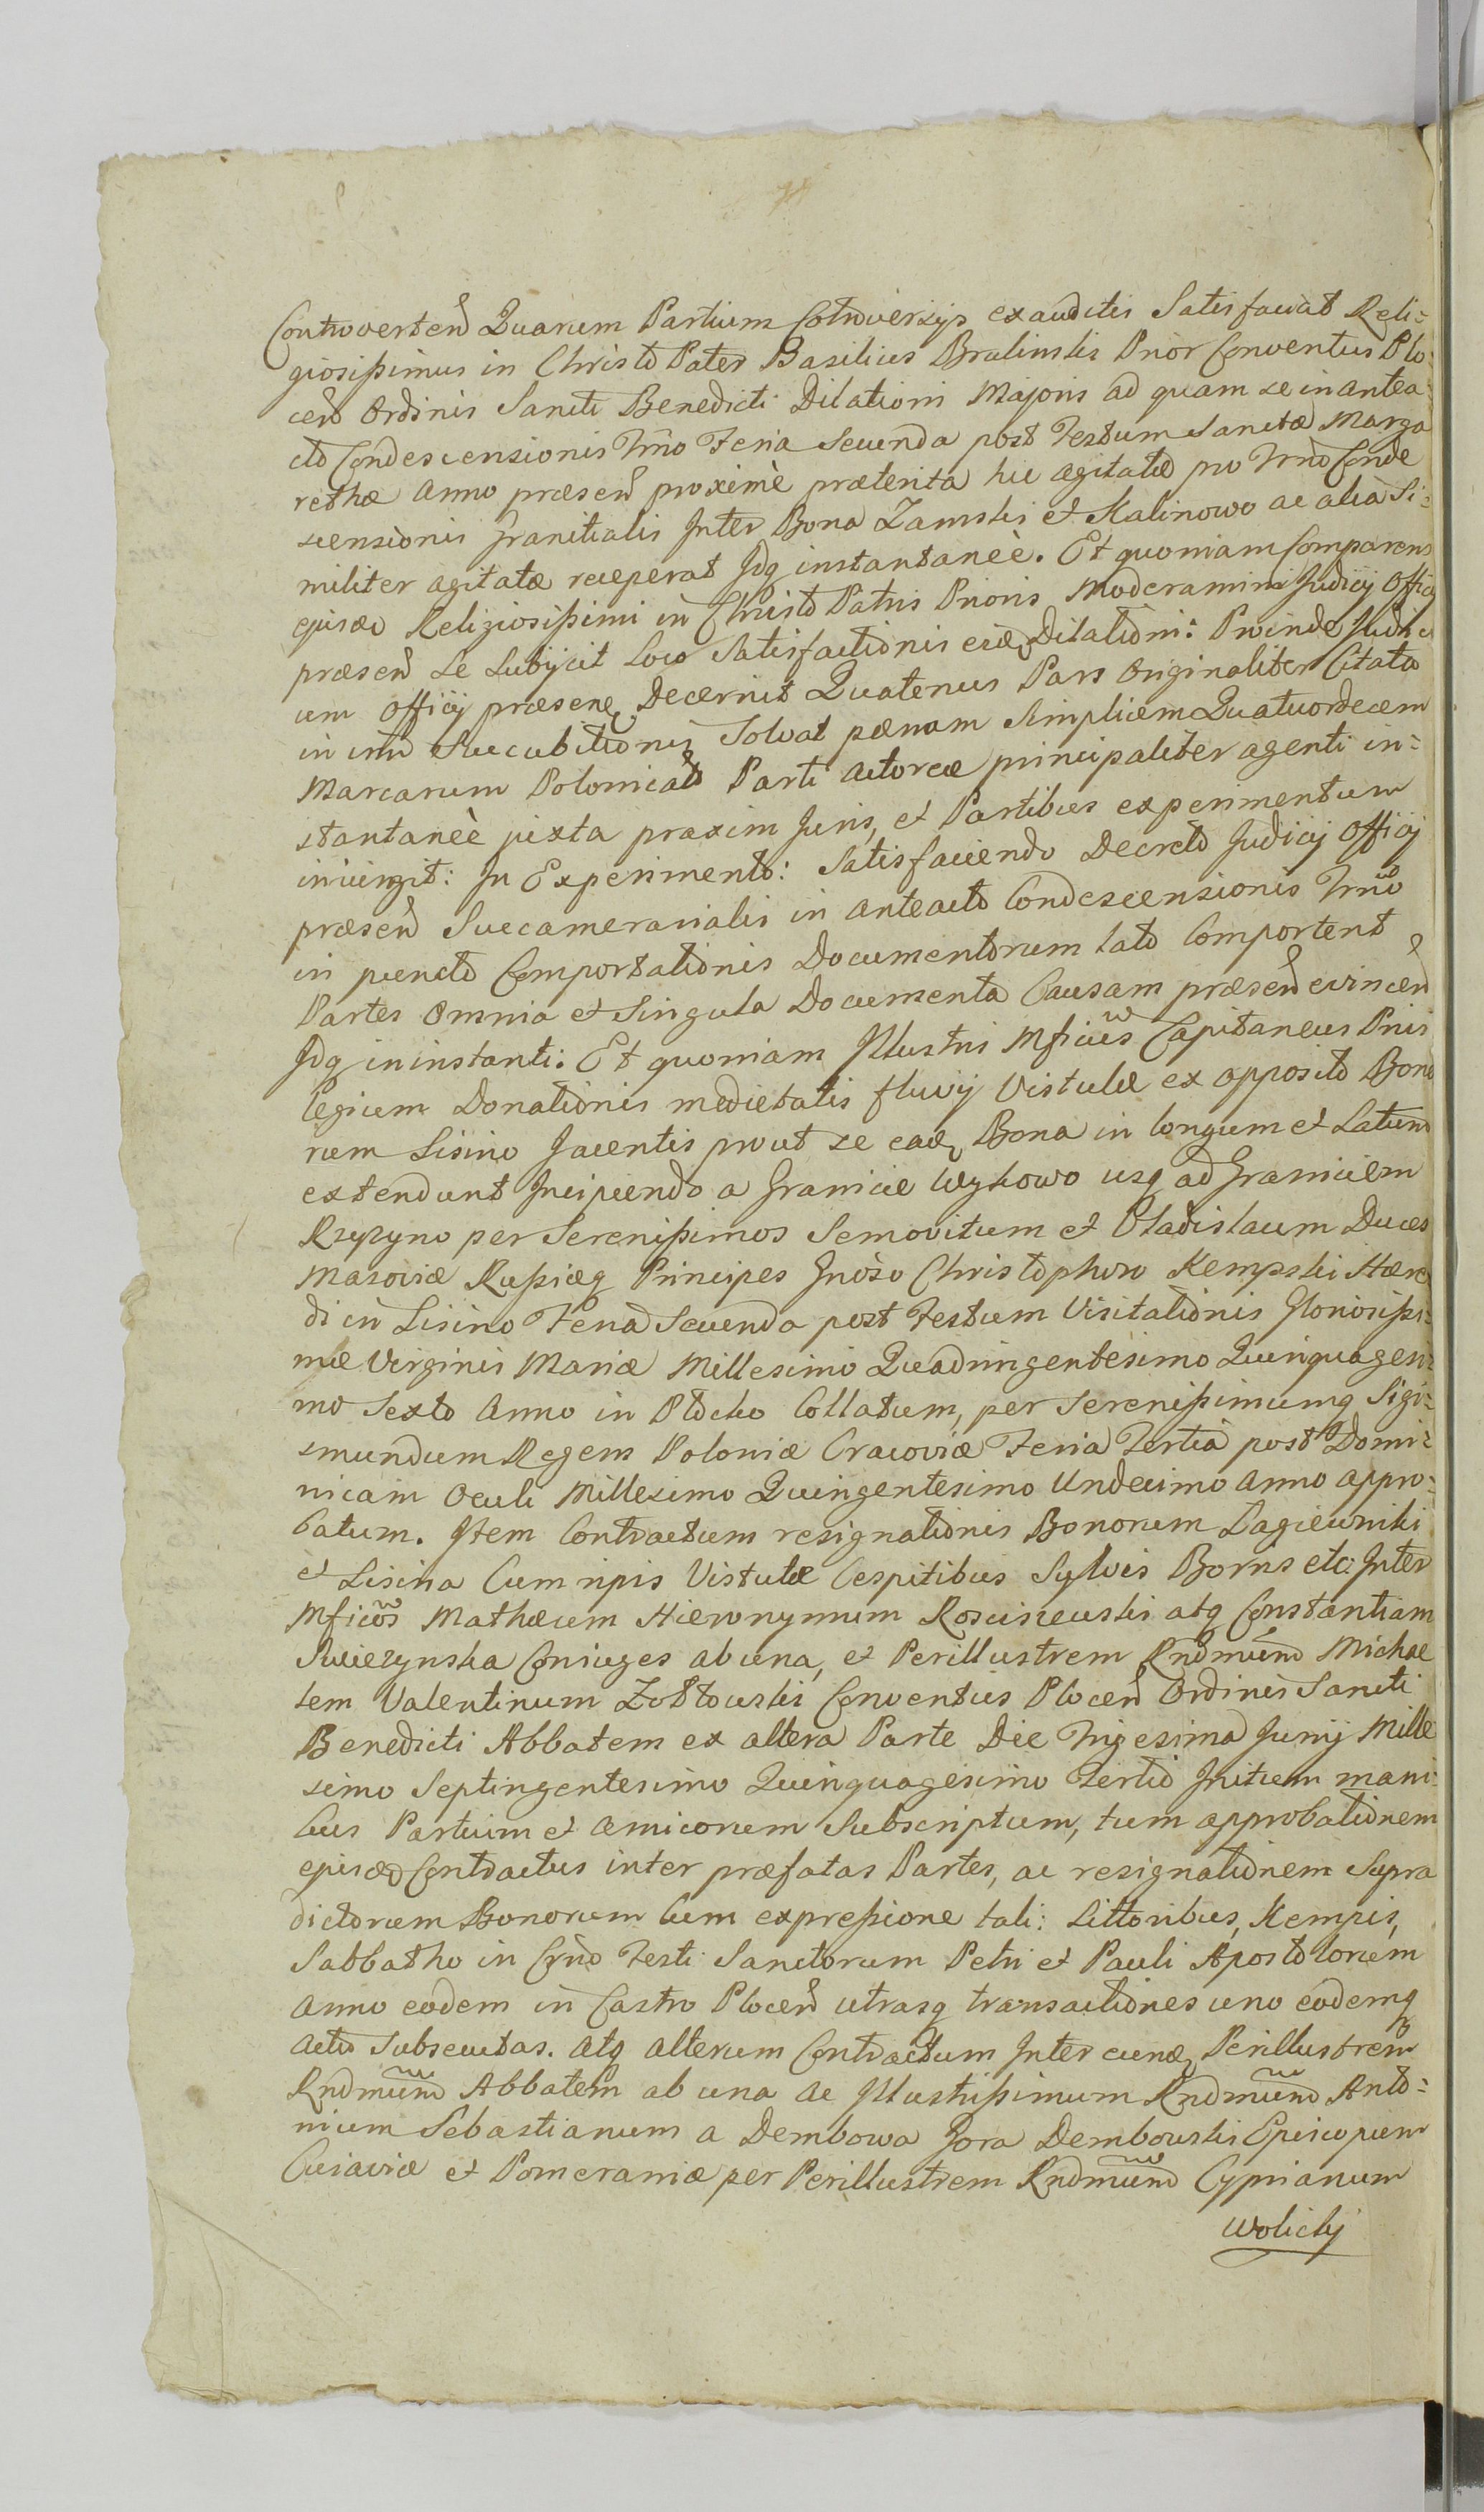 Controverteñ Quarum Partium Cotroversijs exauditis Satisfaciat Reli=
giosißimus in Christo Pater Basilius Bralinski Prior Conventus Plo=
ceñ Ordinis Sancti Benedicti Dilationi Majoris ad quam se in antea=
cto Condescensionis Trno Feria Secunda post Festum Sanctæ Marga
rethæ Anno præseñ proximè præterita hic agitatæ pro Trno Conde
scensionis Granitialis Inter Bona Zamski et Kalinowo ac alia Si=
militer agitatæ receperat Idq instantaneè. Et quoniam Comparens
ejusdē Religiosißimi in Christo Patris Prioris Moderamini Judicij Officij
præseñ Se Subijcit Loco Satisfactionis eidē Dilationi: Proinde Judici
um Officij præsens Decernit Quatenus Pars Originaliter Citata
in vim Succubitionis Solvat pænam Simplicem Quatuordecem
Marcarum Polonicals Parti Actoreæ principaliter agenti in=
stantaneè juxta praxim Juris, et Partibus experimentum
iniungit: In Experimento: Satisfaciendo Decreto Judicij Officij
præseñ Succamerarialis in anteacto Condescensionis Trno
in puncto Comportationis Documentorum lato Comportent
Partes Omnia et Singula Documenta Causam præseñ evinceñ
Idq in instanti: Et quoniam Illustris Mficus Capitaneus Privi
legium Donationis medietatis fluvij Vistulæ ex opposito Bono
rum Lisino Jacentis prout se eadē Bona in longum et Latum
extendunt Incipiendo a Granicie Wykowo usq ad Graniciem
Rzyzyno per Serenißimos Semovitum et Vladislaum Duces
Masoviæ Rußiæq Principes Gnoso Christophoro Kempski Hære
di in Lisino Feria Secunda post Festum Visitationis Gloriosißi=
mæ Virginis Mariæ Millesimo Quadringentesimo Quinquagesi=
mo Sexto Anno in Plocko Collatum, per Serenißimumq Sigi=
smundum Regem Poloniæ Cracoviæ Feria Tertia post Domi=
nicam Oculi Millesimo Quingentesimo Undecimo Anno appro=
batum. Item Contractum resignationis Bonorum Łagiewniki
et Lisina Cum ripis Vistulæ Cespitibus Sylvis Borris etc: Inter
Mficos Mathæum Hieronymum Rosciszewski atq Constantiam
Swiezynska Coniuges ab una, et Perillustrem Rndmum Michae
lem Valentinum Zołtowski Conventus Ploceñ Ordinis Sancti
Benedicti Abbatem ex altera Parte Die Trigesima Junij Mille
simo Septingentesimo Quinquagesimo Tertio Initum mani=
bus Partium et Amicorum Subscriptum, tum approbationem
ejusdē Contractus inter præfatas Partes, ac resignationem Supra
dictorum Bonorum Cum expreßione tali: Littoribus, Kempis,
Sabbatho in Crno Festi Sanctorum Petri et Pauli Apostolorum
Anno eodem in Castro Ploceñ utrasq transactiones uno eodemq
Actu Subsecutas. Atq alterum Contractum Inter eundē Perillustrem
Rndmum Abbatem ab una ac Illustrißimum Rndmum Anto=
nium Sebastianum a Dembowa Gora Dembowski Episcopum
Cuiaviæ et Pomeraniæ per Perillustrem Rndmum Cyprianum
Wolicky